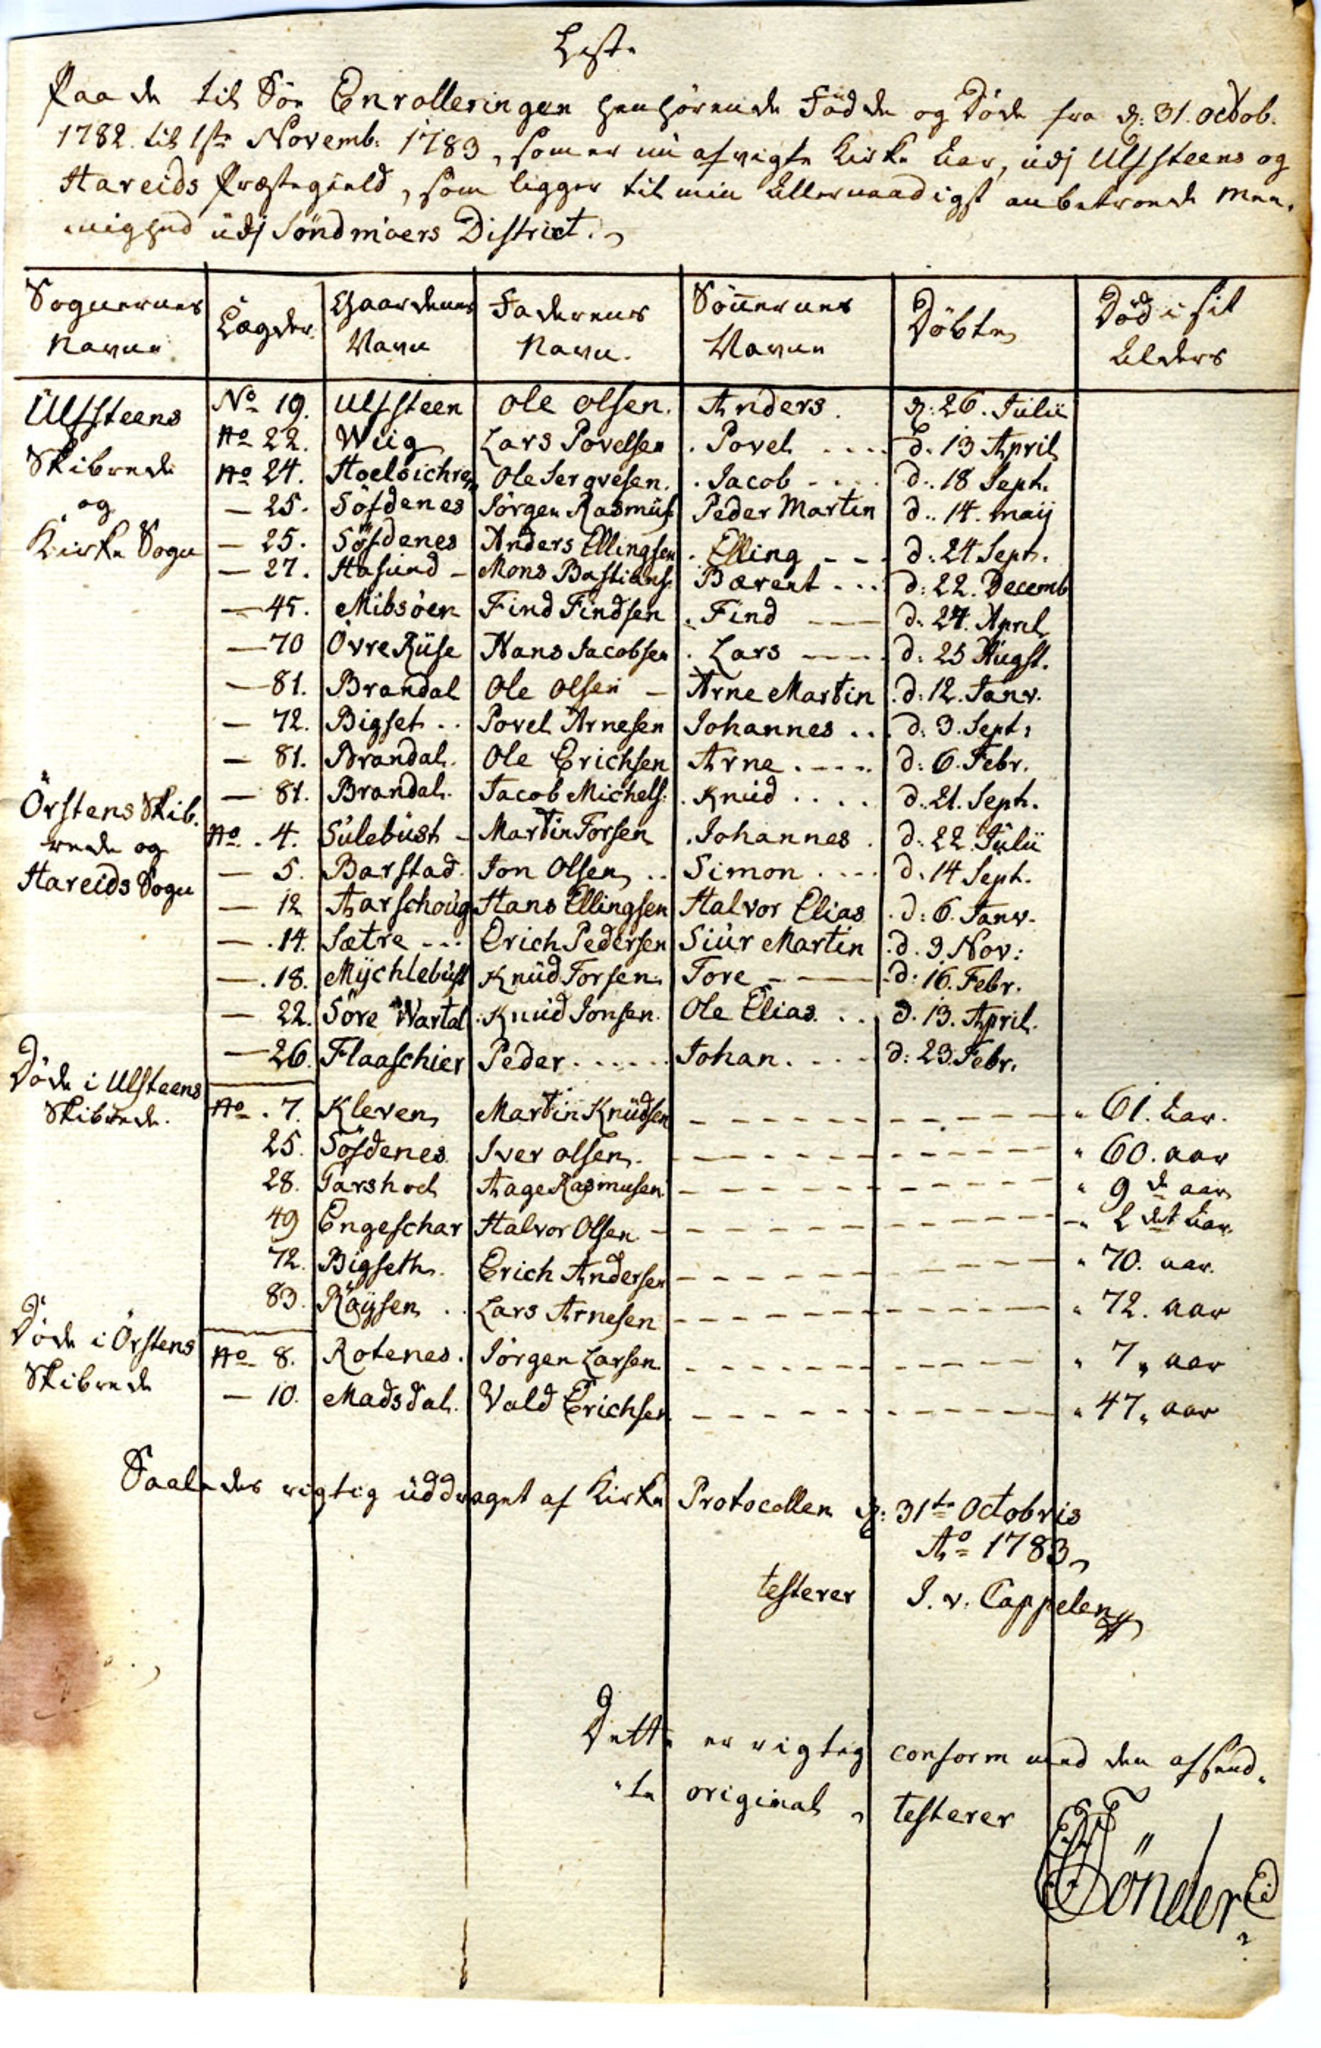 Liste
Paa de til Söe Enrolleringen henhörende Födde og Döde fra d: 31. octob:
1782. til 1ste Novemb: 1783, som er nu afvigte Kirke Aar, udj Ulfsteens og
Hareids Præstegield, som ligger til min Allernaadigst anbetroede Mee-
nighed udj Söndmöers District.
Sognernes Lægder. Gaardenes Faderens Sönnernes Döbte Död i sit
Navne Navn Navn. Navne Alders
Ulfsteens No 19. Ulfsteen Ole Olsen. Anders. d: 26. Julii
No 22. Wiig Lars Povelsen . Povel .... d. 13 April
Skibrede No 24. Ole Sergvesen. . Jacob - - . d. 18 Sept.
og — 25. Söfdenes Jörgen Rasmus Peder Martin d.. 14. maij
Kirke Sogn — 25. Söfdenes Anders Ellingsen . Elling - - d: 24 Sept.
— 27. Hasund - Mons Bastians. Bærent - . . d: 22. Decemb
— 45. Mibsöen Find Findsen . Find — d: 24. April
— 70 Övre Rüse Hans Jacobsen . Lars — - d: 25 Augst.
— 81. Brandal Ole Olsen - Arne Martin d: 12. Janv.
— 72. Bigset . . Povel Arnesen Johannes . . d: 3. Sept:
— 81. Brandal. Ole Erichsen Arne . - - . d: 6. Febr.
Örstens Skib- — 81. Brandal. Jacob Michels. . Knud . . . . d. 21. Sept.
rede og No . 4. Sulebust - Martin Torsen . Johannes . d: 22. Julii
Hareids Sogn — 5. Barstad. Jon Olsen . . Simon . . . . d: 14 Sept.
— 12 Aarschoug Hans Ellingsen Halvor Elias . d: 6. Janv.
— . 14. Sætre - - . Erich Pedersen Siur Martin . d. 9. Nov:
— . 18. Mÿchlebust Knud Torsen. Tore - — . d: 16. Febr.
— 22. Söre Wartal . Knud Jonsen. Ole Elias . . d. 13. April.
— 26. Flaaschier Peder . . . . . . Johan . . . . d: 23. Febr.
Döde i Ulsteens No . 7. Kleven Martin Knudsen „ 61. Aar.
Skibrede. 25. Söfdenes Iver Olsen. „ 60. aar
28. Garshol Aage Rasmusen „ 9 de aar
49 Engeschar Halvor Olsen „ 2 det Aar.
72. Bigseth. Erich Andersen „ 70. aar.
83. Röÿsen . . Lars Arnesen „ 72. aar
Döde i Örstens No 8. Rotenes. Jörgen Larsen „ 7 „ aar
Skibrede — 10. Madsdal. Vald Erichsen „ 47 „ aar
Saaledes rigtig uddraget af Kirke Protocollen d: 31te Octobris
Ao 1783,
testerer J. v. Cappelen
Dette er rigteg conform med den afsend-
te original, testerer
Tönder